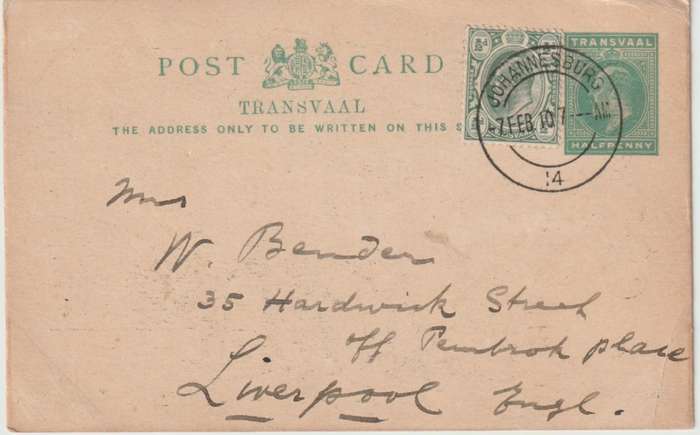 POST CARD
TRANSVAAL
THE ADDRESS ONLY TO BE WRITTEN ON THIS S
½d
TRANSVAAL
HALFPENNY
JOHANNESBURG
7 FEB 10 7 - - - AM
14
Mrs
W. Bender
35 Hardwick Street
off Pembrok place
Liverpool Engl.